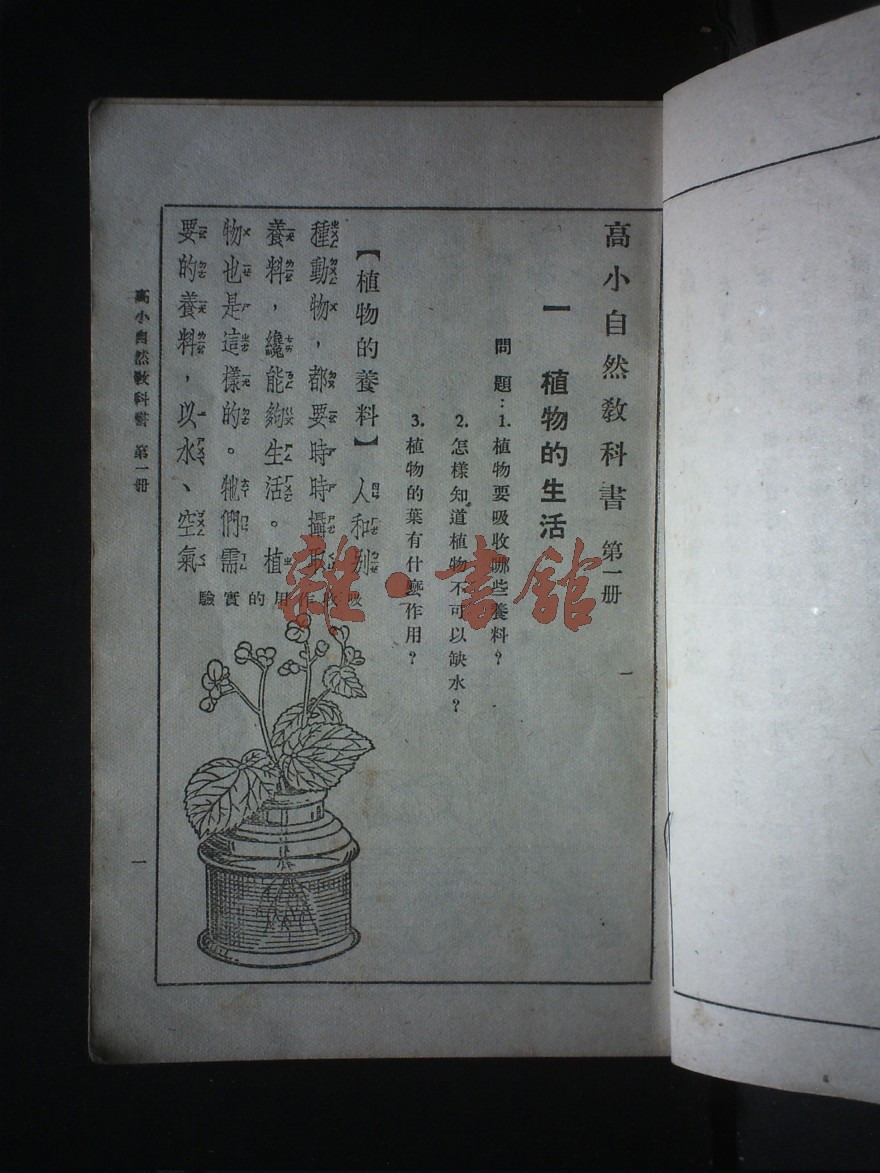 高小自然教科書 第一册 一
一 植物的生活
問題：1. 植物要吸收哪些養料？
2. 怎樣知道植物不可以缺水？
3. 植物的葉有什麼作用？
【植物的養料】人和別
種動物，都要時時攝取
養料，纔能夠生活。植
物也是這樣的。牠們需
要的養料，以水、空氣
吸收作用的實驗
高小自然教科書 第一册
一
雜·書館